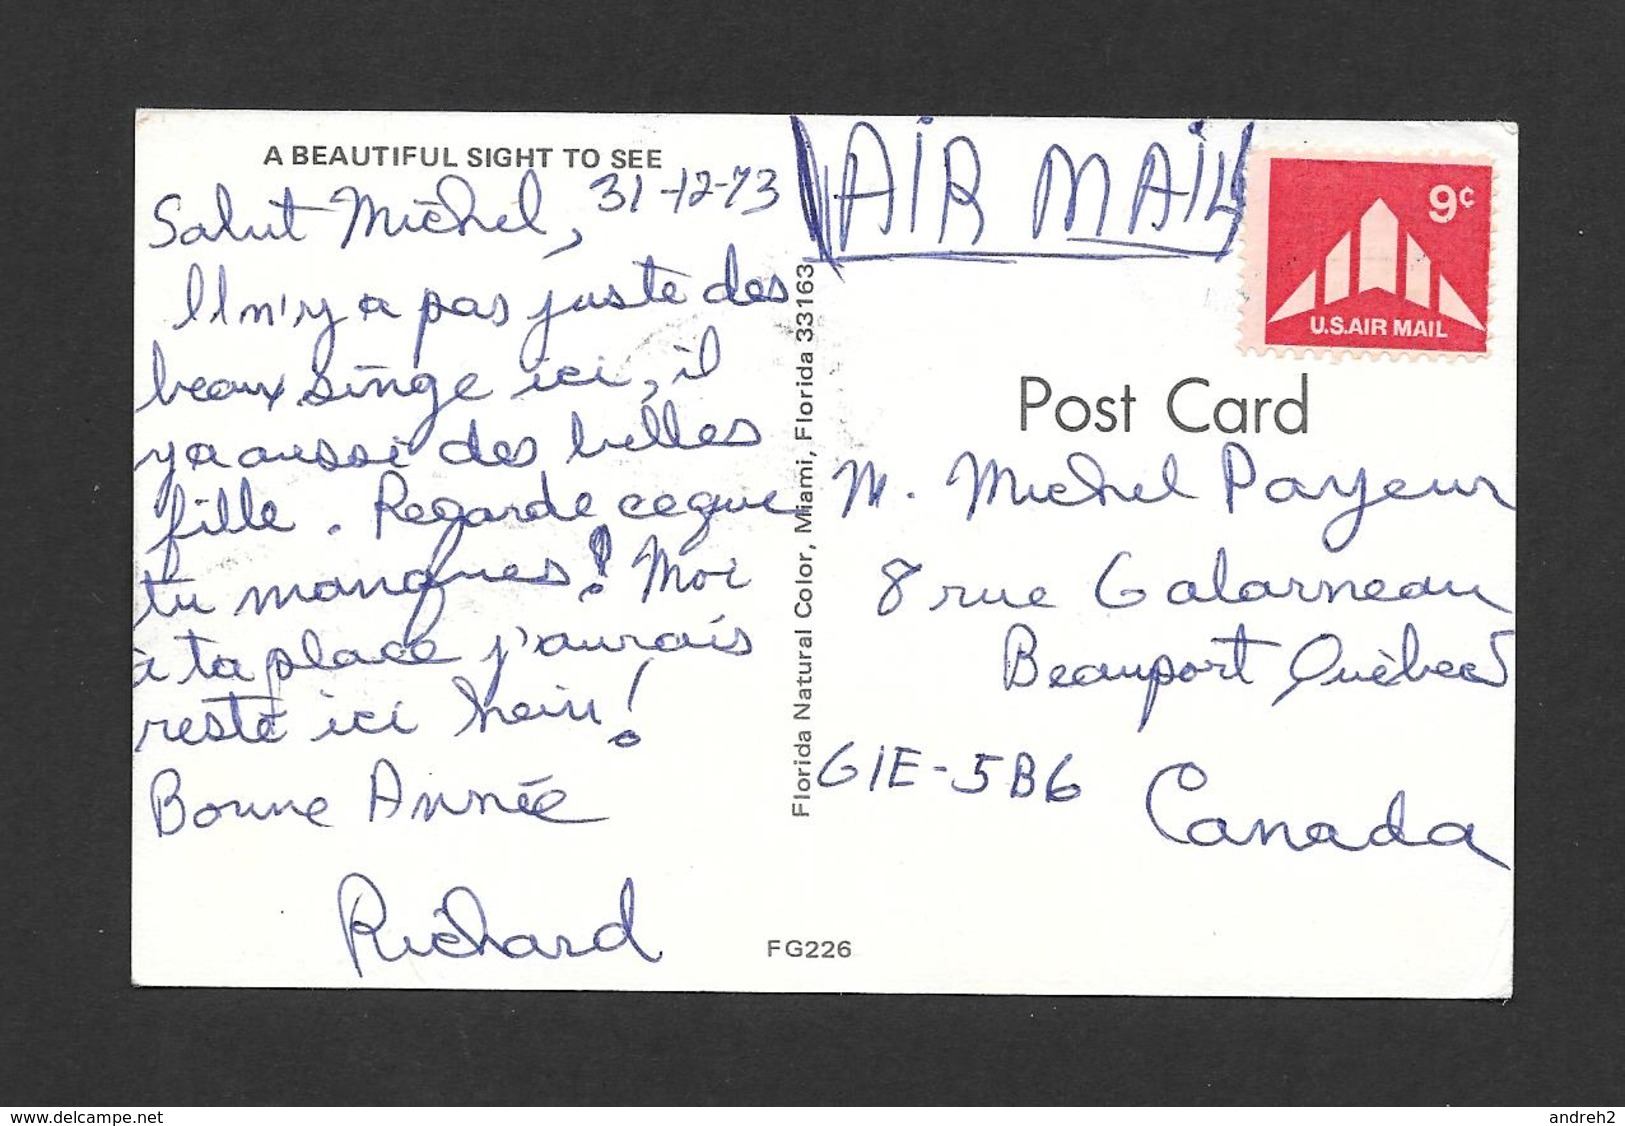 A BEAUTIFUL SIGHT TO SEE
31-12-73
Salut Michel,
Il n'y a pas juste des
beaux singe ici, il
y a aussi des belles
fille. Regarde ceque
tu manques! Moi
à ta place j'aurais
resté ici hein!
Bonne Année
Richard
Florida Natural Color, Miami, Florida 33163
FG226
AiR MAiL
9¢
U.S.AIR MAIL
Post Card
M. Michel Payeur
8 rue Galarneau
Beauport Québec
G1E-5B6
Canada
www.delcampe.net
andreh2